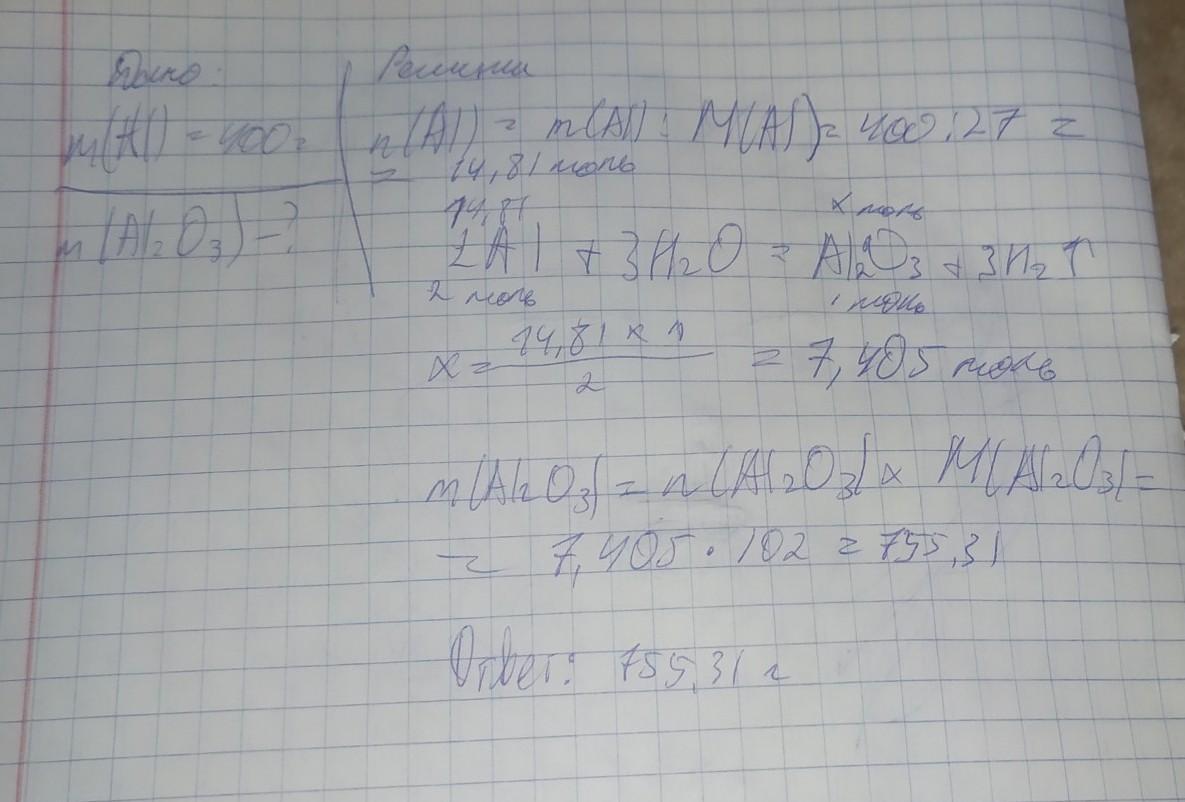 Дано:
m(Al) = 400г
m(Al₂O₃) - ?
Решения
n(Al) = m(Al) : M(Al) = 400 : 27 =
= 14,81 моль
14,81 x моль
2Al + 3H₂O = Al₂O₃ + 3H₂↑
2 моль 1 моль
x = 14,81 x 1 / 2 = 7,405 моль
m(Al₂O₃) = n(Al₂O₃) x M(Al₂O₃) =
= 7,405 · 102 = 755,31
Ответ: 755,31 г